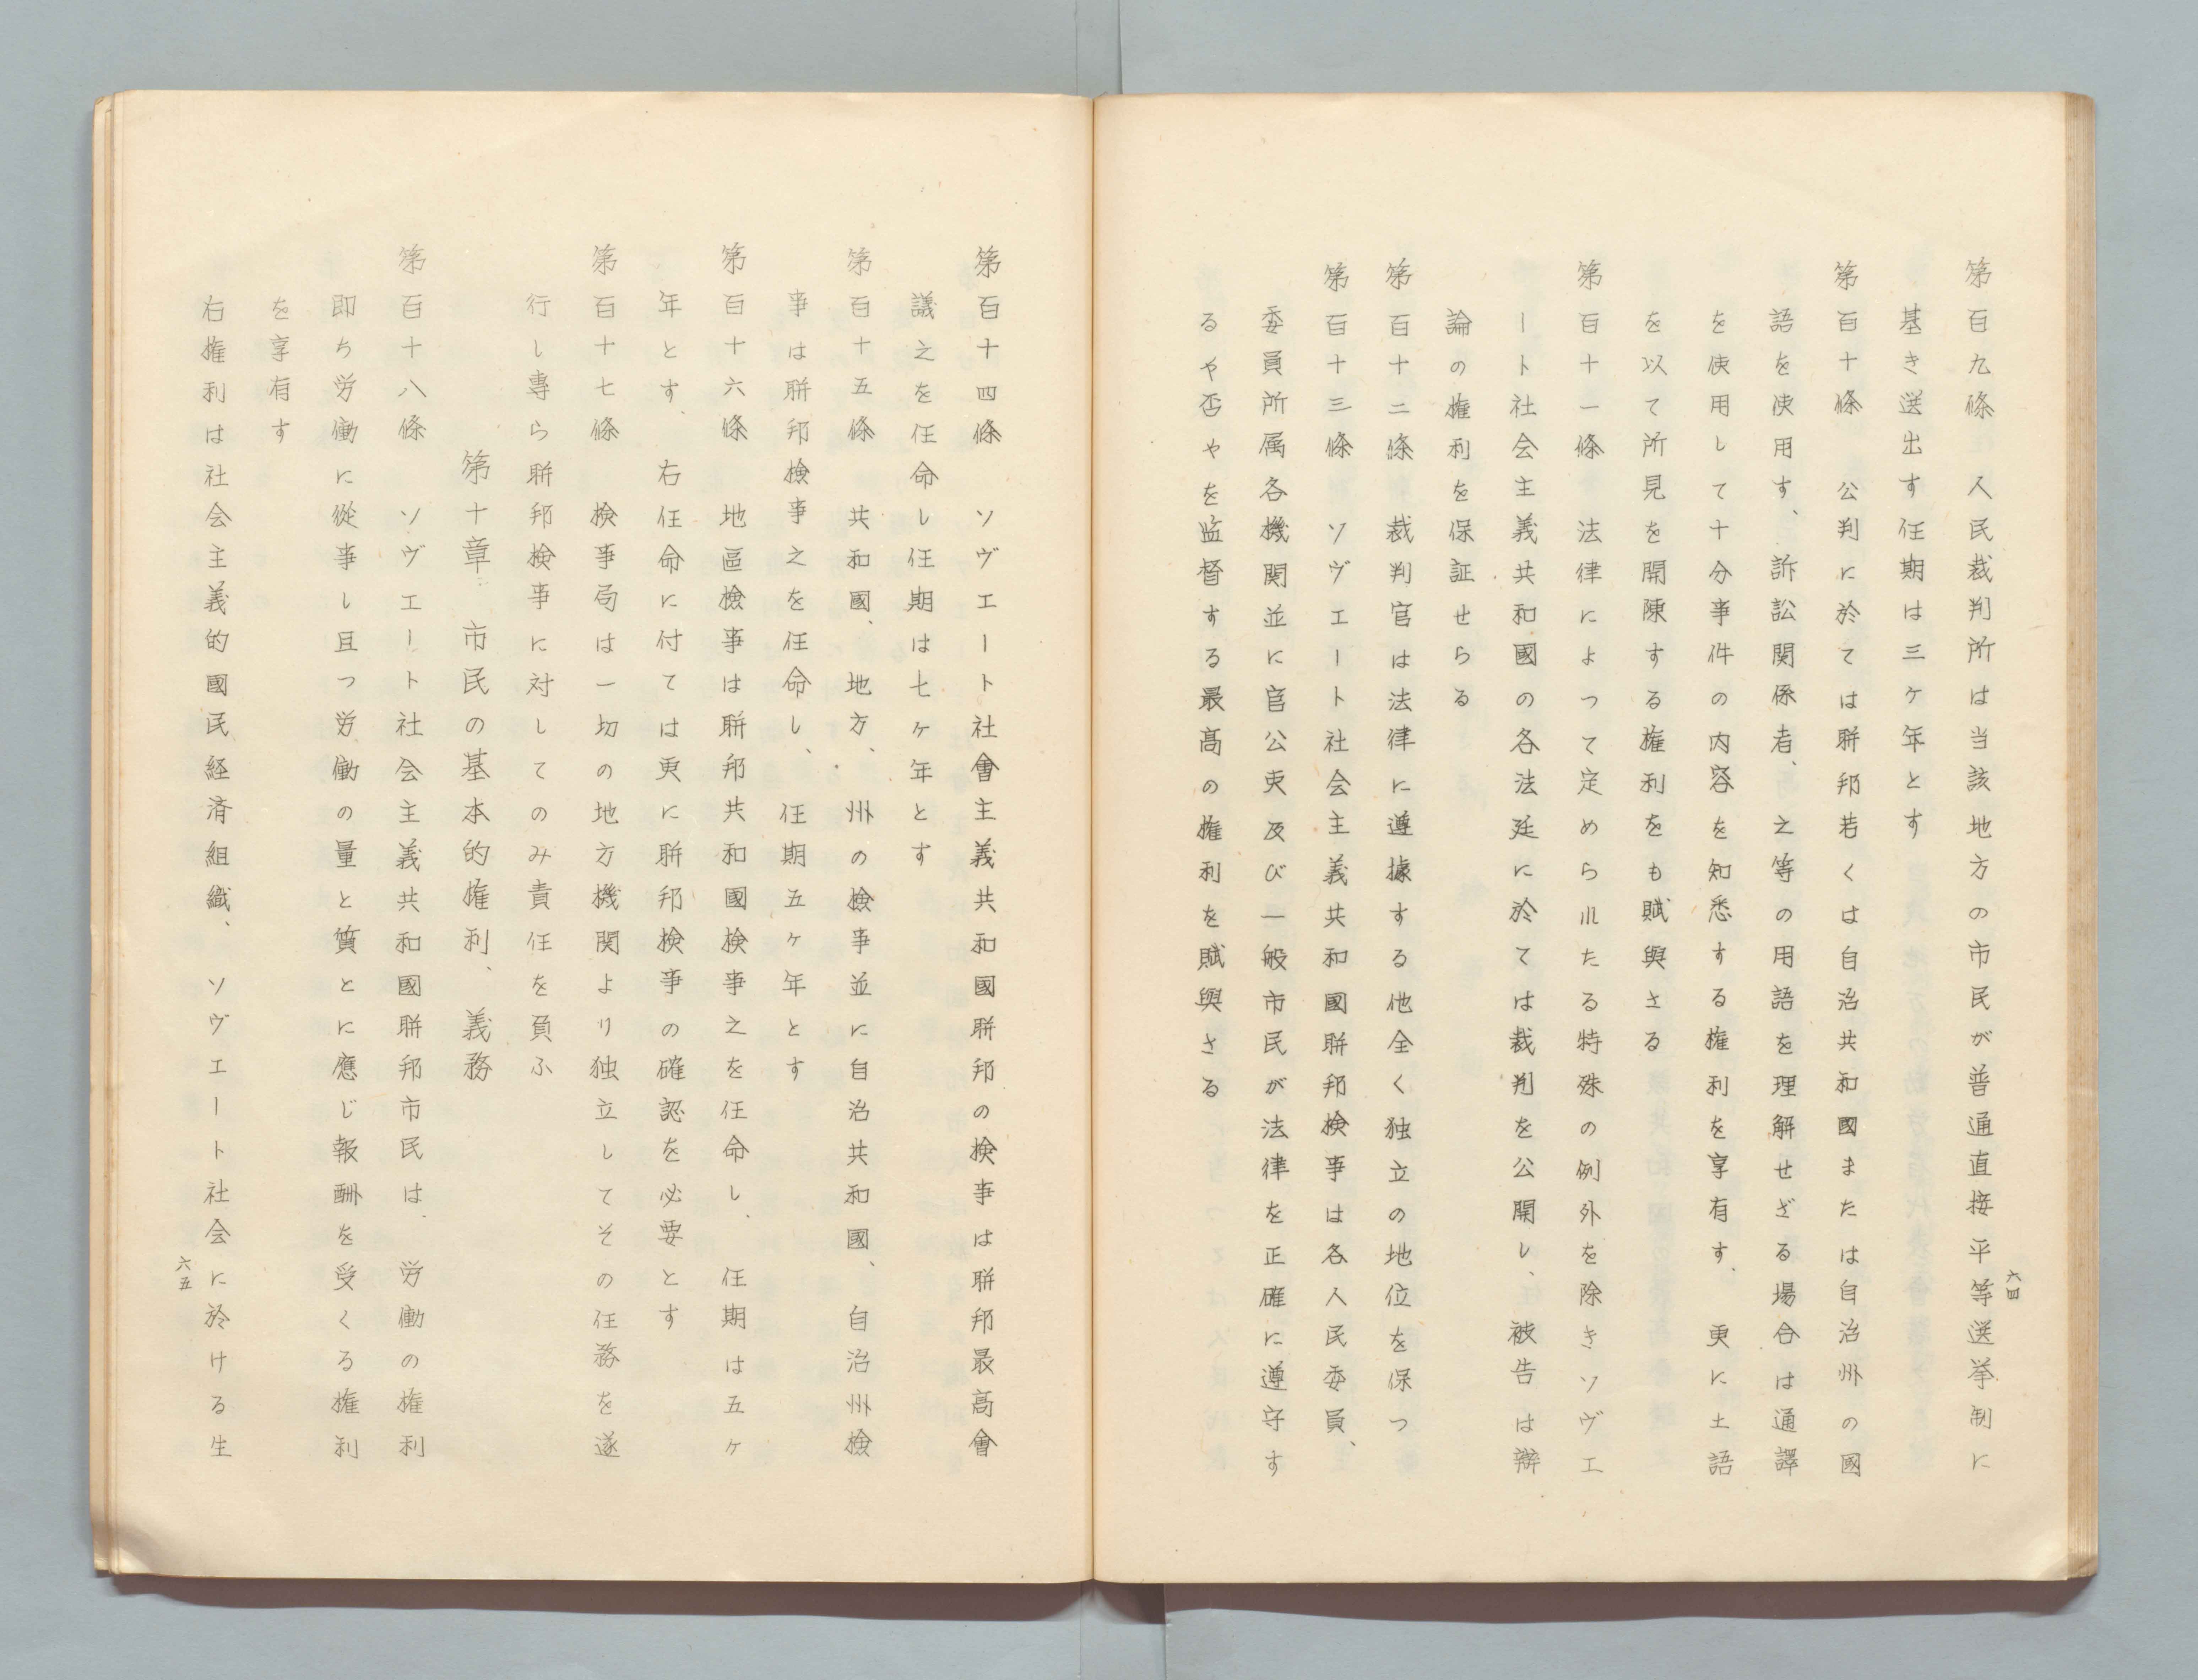 第百九條　人民裁判所は当該地方の市民が普通直接平等選挙制に
基き送出す任期は三ヶ年とす
第百十條　公判に於ては聨邦若くは自治共和國または自治州の國
語を使用す、訴訟関係者、之等の用語を理解せざる場合は通譯
を使用して十分事件の内容を知悉する権利を享有す、更に土語
を以て所見を開陳する権利をも賦與さる
第百十一條　法律によつて定められたる特殊の例外を除きソヴエ
ート社会主義共和國の各法廷に於ては裁判を公開し、被告は辯
論の権利を保証せらる
第百十二條　裁判官は法律に遵據する他全く独立の地位を保つ
第百十三條　ソヴエート社会主義共和國聨邦検事は各人民委員、
委員所属各機関並に官公吏及び一般市民が法律を正確に遵守す
るや否やを監督する最高の権利を賦與さる
六四
第百十四條　ソヴエート社會主義共和國聨邦の検事は聨邦最高會
議之を任命し任期は七ヶ年とす
第百十五條　共和國、地方、州の検事並に自治共和國、自治州検
事は聨邦検事之を任命し、任期五ヶ年とす
第百十六條　地區検事は聨邦共和國検事之を任命し、任期は五ヶ
年とす、右任命に付ては更に聨邦検事の確認を必要とす
第百十七條　検事局は一切の地方機関より独立してその任務を遂
行し專ら聨邦検事に対してのみ責任を負ふ
第十章　市民の基本的権利、義務
第百十八條　ソヴエート社会主義共和國聨邦市民は、労働の権利
即ち労働に從事し且つ労働の量と質とに應じ報酬を受くる権利
を享有す
右権利は社会主義的國民経済組織、ソヴエート社会に於ける生
六五